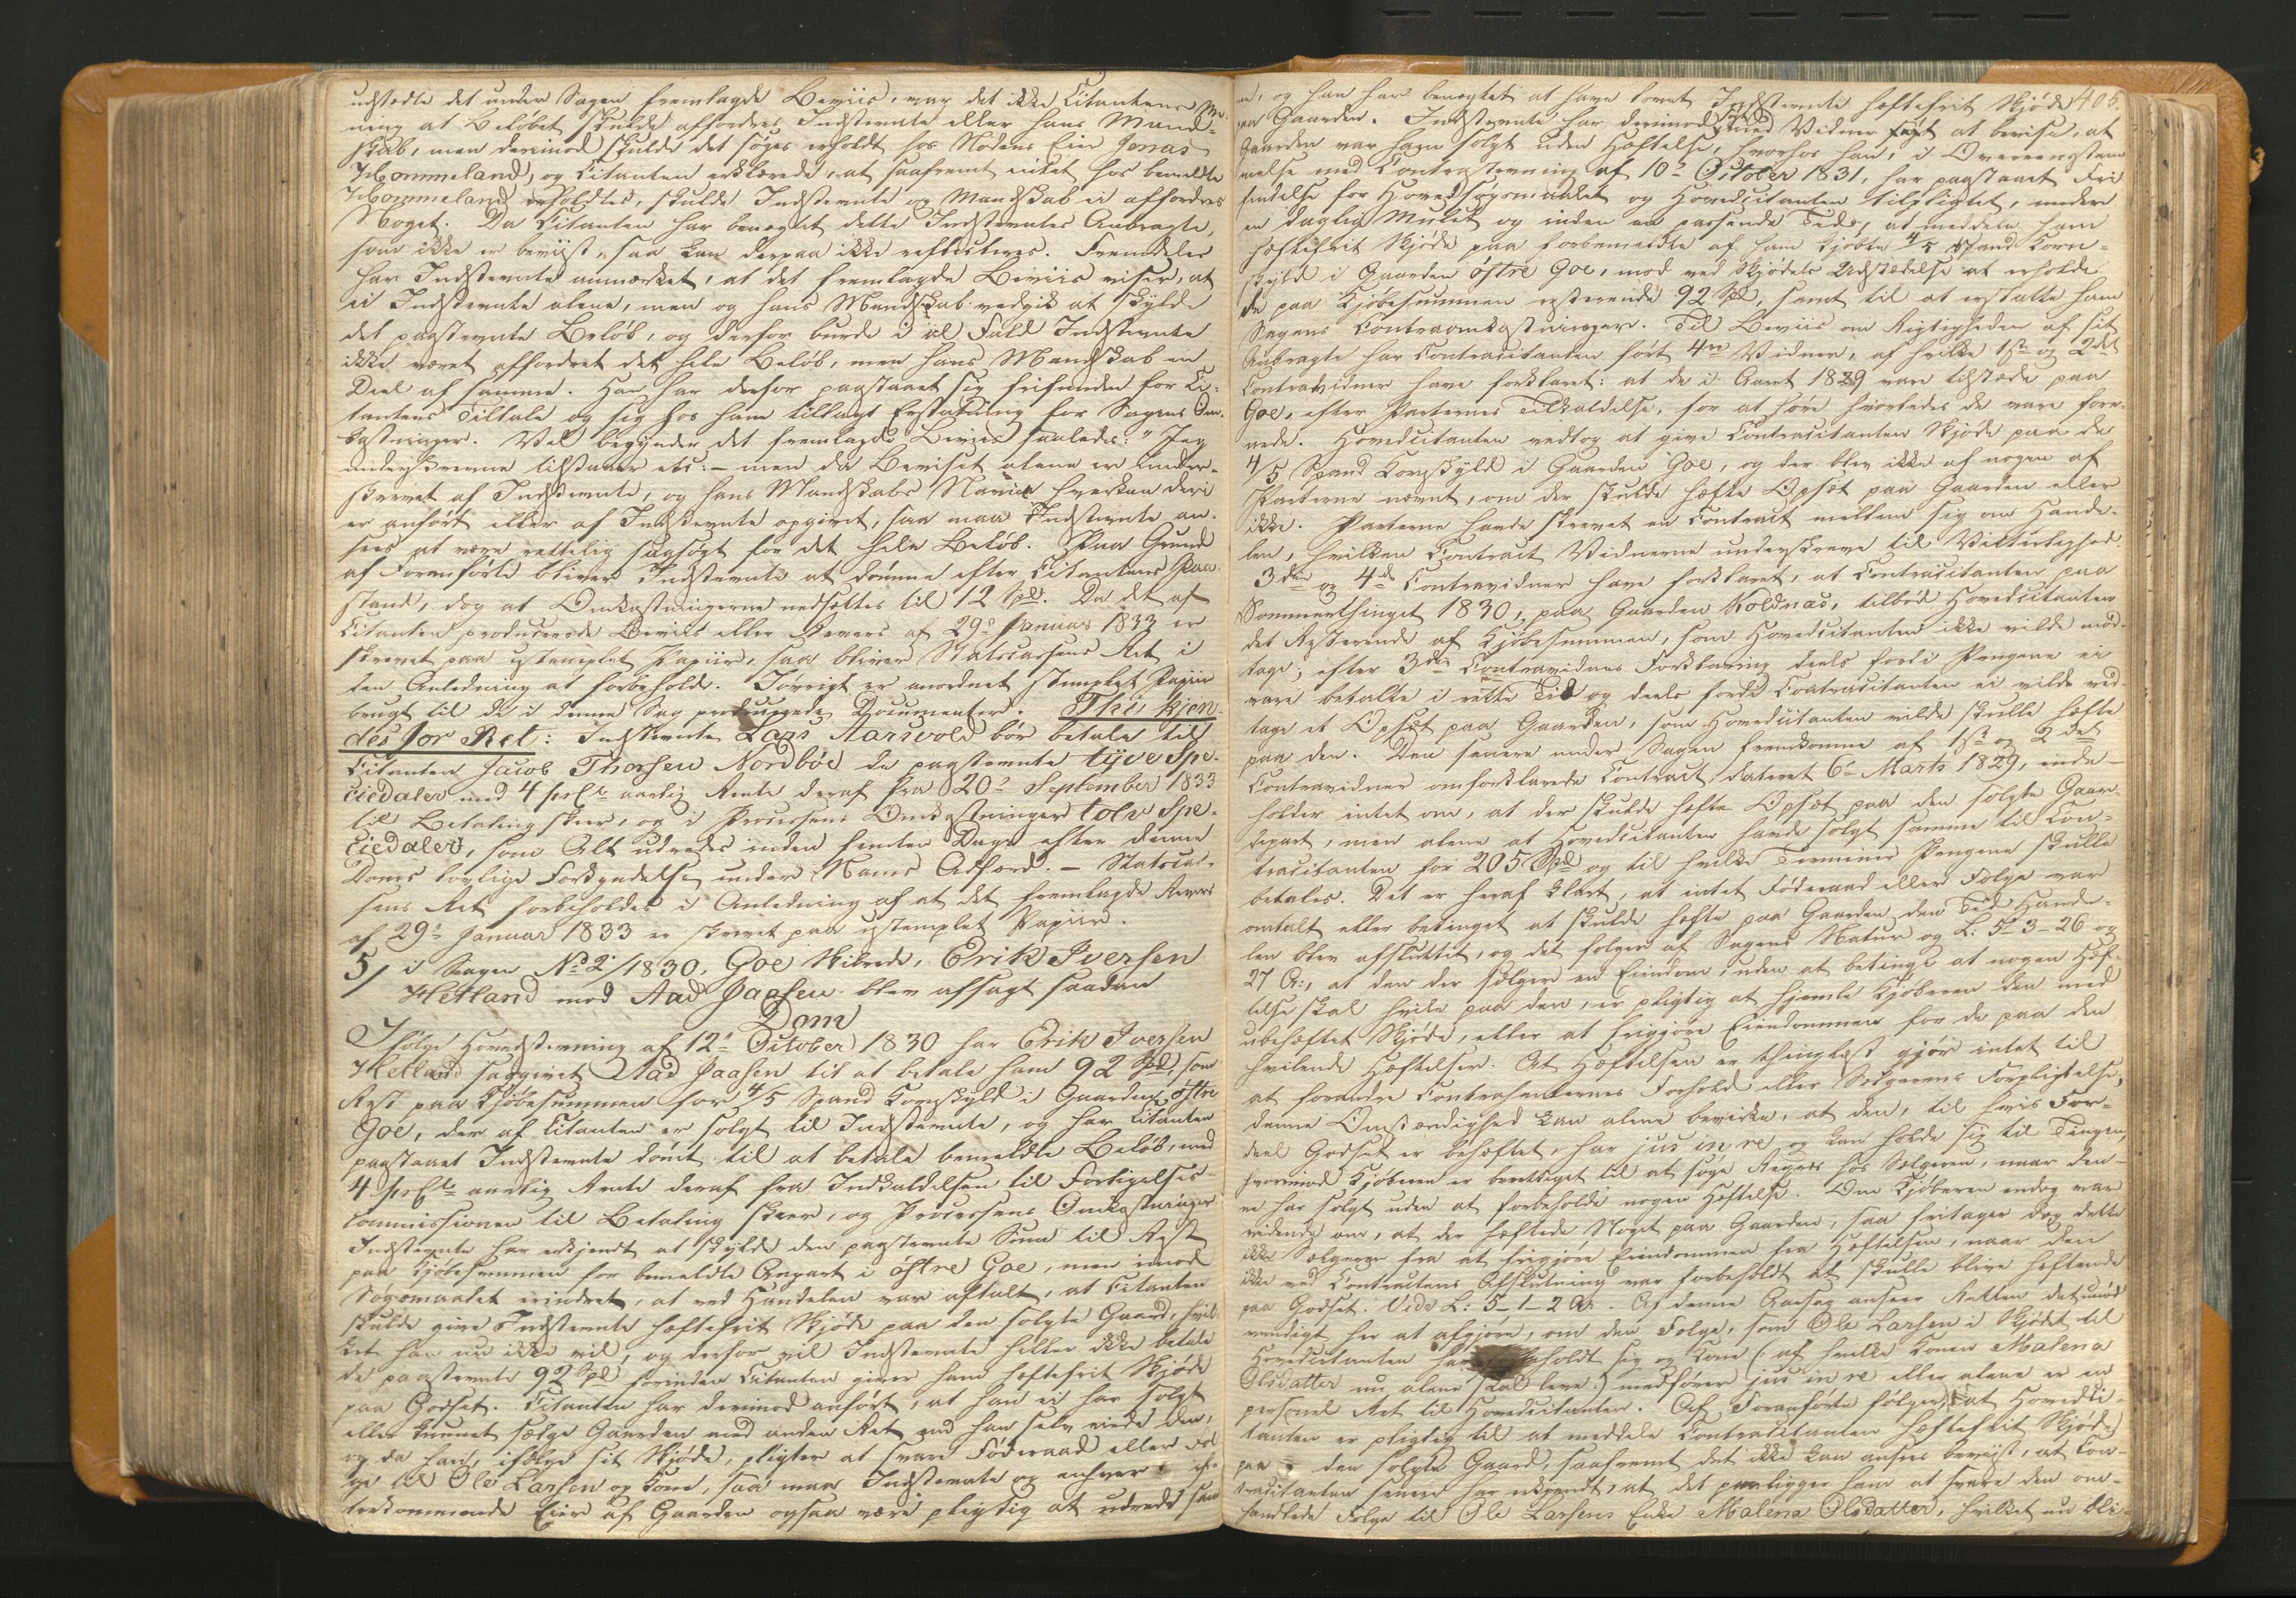 udstedte det under Sagen fremlagde Beviis, var det ikke Citantens Me-
ning at Beløbet skulde affordres Indstevnte eller hans Mand-
skab, men derimod skulde det søges erholdt hos Nodens Eier Jonas
Hommeland, og Citanten erklærede, at saafremt intet hos bemeldte
Hommeland erholdtes, skulde Indstevnte og Mandskab ei affordres
Noget. Da Citanten har benægtet dette Indstevntes Anbragte,
som ikke er beviist, saa kan derpaa ikke reflecteres. Fremdeles
har Indstevnte anmærket, at det fremlagde Beviis viser, at
ei Indstevnte alene, men og hans Mandskab vedgik at skylde
det paastevnte Beløb, og derfor burde i al Fald Indstevnte
ikke været affordret det hele Beløb, men hans Mandskab en
Deel af samme. Han har derfor paastaaet sig frifunden for Ci-
tantens Tiltale og sig hos ham tillagt Erstatning for Sagens Om-
kostninger. Vel begynder det fremlagde Beviis saaledes: "Jeg
underskrevne tilstaaer etc: - men da Beviset alene er under-
skrevet af Indstevnte, og hans Mandskabs Navne hverken deri
er anført eller af Indstevnte opgivet, saa maa Indstevnte an-
sees at være rettelig sagsøgt for det hele Beløb. Paa Grund
af Foranførte bliver Indstevnte at dømme efter Citantens Paa-
stand, dog at Omkostningerne nedsættes til 12 Spd. Da det af
Citanten producerede Beviis eller Revers af 29de Januar 1833 er
skrevet paa ustemplet Papiir, saa bliver Statscassens Ret i
den Anledning at forbeholde. Iøvrigt er anordnet stemplet Papiir
brugt til de i denne Sag producerede Documenter. Thi kjen-
des for Ret: Indstevnte Lars Aarsvold bør betale til
Citanten Jacob Thorsen Nordbøe de paastevnte tyve Spe-
ciedaler med 4 prCt aarlig Rente deraf fra 20de September 1833
til Betaling skeer, og i Processens Omkostninger tolv Spe-
ciedaler, som Alt udredes inden femten Dage efter denne
Doms lovlige Forkyndelse under Nams Adfærd. - Statscas-
sens Ret forbeholdes i Anledning af at det fremlagde Revers
af 29de Januar 1833 er skrevet paa ustemplet Papiir.
5/ i Sagen No 2/1830, Goe Skibrede, Erik Iversen
Hetland mod Aad Jaasen blev afsagt saadan
Dom
Ifølge Hovedstevning af 12te October 1830 har Erik Iversen
Hetland sagsøgt Aad Jaasen til at betale ham 92 Spd, som
Rest paa Kjøbesummen for 4/5 Spand Kornskyld i Gaarden østre
Goe, der af Citanten er solgt til Indstevnte, og har Citanten
paastaaet Indstevnte dømt til at betale bemeldte Beløb, med
4 prCt aarlig Rente deraf fra Indkaldelsen til Forligelses-
commissionen til Betaling skeer, og Processens Omkostninger
Indstevnte har erkjendt at skylde den paastevnte Sum til Rest
paa Kjøbesummen for bemeldte Anpart i østre Goe, men imod
Søgsmaalet erindret, at ved Handelen var aftalt, at Citanten
skulde give Indstevnte heftefrit Skjøde paa den solgte Gaard, hvil-
ket han nu ikke vil, og derfor vil Indstevnte heller ikke betale
de paastevnte 92 Spd forinden Citanten giver ham heftefrit Skjøde
paa Godset. Citanten har derimod anført, at han ei har solgt
eller kunnet sælge Gaarden med anden Ret end han selv eiede den,
og da han, ifølge sit Skjøde, pligter at svare Føderaad eller Fol-
ge til Ole Larsen og Kone, saa maa Indstevnte og enhver efter-
kommende Eier af Gaarden ogsaa være pligtig at udrede sam-
405.
me, og han har benægtet at have lovet Indstevnte heftefrit Skjøde
paa Gaarden. Indstevnte har derimod med Vidner søgt at bevise, at
Gaarden var ham solgt uden Heftelse, hvorhos han, i Overeensstem-
melse med Contrastevning af 10de October 1831, har paastaaet Fri-
findelse for Hovedsøgsmaalet og Hovedcitanten tilpligtet, under
en daglig Mulct og inden en passende Tid, at meddele ham
heftefrit Skjøde paa forbemeldte af ham kjøbte 4/5 Spand Korn-
skyld i Gaarden østre Goe, mod ved Skjødets Udstædelse at erholde
de paa Kjøbesummen resterende 92 Spd, samt til at erstatte ham
Sagens Contraomkostninger. Til Beviis om Rigtigheden af sit
Anbragte har Contracitanten ført 4re Vidner, af hvilke 1ste og 2det
Contravidner have forklaret: at de i Aaret 1829 vare tilstæde paa
Goe, efter Parternes Tilkaldelse, for at høre hvorledes de vare fore-
nede. Hovedcitanten vedtog at give Contracitanten Skjøde paa de
4/5 Spand Kornskyld i Gaarden Goe, og der blev ikke af nogen af
Parterne nævnt, om der skulde hefte Opsæt paa Gaarden eller
ikke. Parterne havde skrevet en Contract mellem sig om Hande-
len, hvilken Contract Vidnerne underskreve til Vitterlighed.
3die og 4de Contravidner have forklaret, at Contracitanten paa
Sommerthinget 1830, paa Gaarden Voldnæs, tilbød Hovedcitanten
det Resterende af Kjøbesummen, som Hovedcitanten ikke vilde mod-
tage; efter 3die Contravidnes Forklaring deels fordi Pengene ei
vare betalte i rette Tid og deels fordi Contracitanten ei vilde ved-
tage et Opsæt paa Gaarden, som Hovedcitanten vilde skulle hefte
paa den. Den senere under Sagen fremkomne af 1ste og 2det
Contravidner omforklarede Contract, dateret 6te Marts 1829, inde-
holder intet om, at der skulde hefte Opsæt paa den solgte Gaar-
depart, men alene at Hovedcitanten havde solgt samme til Con-
tracitanten for 205 Spd og til hvilke Terminer Pengene skulle
betales. Det er heraf klart, at intet Føderaad eller Folge var
omtalt eller betinget at skulde hefte paa Gaarden den Tid Hande-
len blev afsluttet, og det følger af Sagens Natur og L: 5-3-26 og
27 Ar, at den der sælger en Eiendom, uden at betinge at nogen Hef-
telse skal hvile paa den, er pligtig at hjemle Kjøberen den med
ubeheftet Skjøde, eller at frigjøre Eiendommen for de paa den
hvilende Heftelser. At Heftelsen er thinglæst gjør intet til
at forandre Contrahenternes Forhold eller Sælgerens Forpligtelse;
denne Omstændighed kan alene bevirke, at den, til hvis For-
deel Godset er beheftet, har jus in re og kan holde sig til Tingen,
hvorimod Kjøberen er berettiget til at søge Regres hos Sælgeren, naar den-
ne har solgt uden at forbeholde nogen Heftelse. Om Kjøberen endog var
vidende om, at der heftede Noget paa Gaarden, saa fritager dog dette
ikke Sælgeren fra at frigjøre Eiendommen fra Heftelsen, naar den
ikke ved Contractens Afslutning var forbeholdt at skulle blive heftende
paa Godset. Vide L: 5-1-2 Ar. Af denne Aarsag anseer Retten det unød-
vendigt her at afgjøre, om den Folge, som Ole Larsen i Skjødet til
Hovedcitanten har forbeholdt sig og Kone (: af hvilke Konen Malena
Olsdatter nu alene skal leve :) medfører jus in re eller alene er en
personel Ret til Hovedcitanten. Af Foranførte følger, at Hovedci-
tanten er pligtig til at meddele Contracitanten heftefrit Skjøde
paa den solgte Gaard, saafremt det ikke kan ansees beviist, at Con-
tracitanten senere har erkjendt, at det paaligger ham at svare den om-
handlede Folge til Ole Larsens Enke Malena Olsdatter, hvilket nu bli-